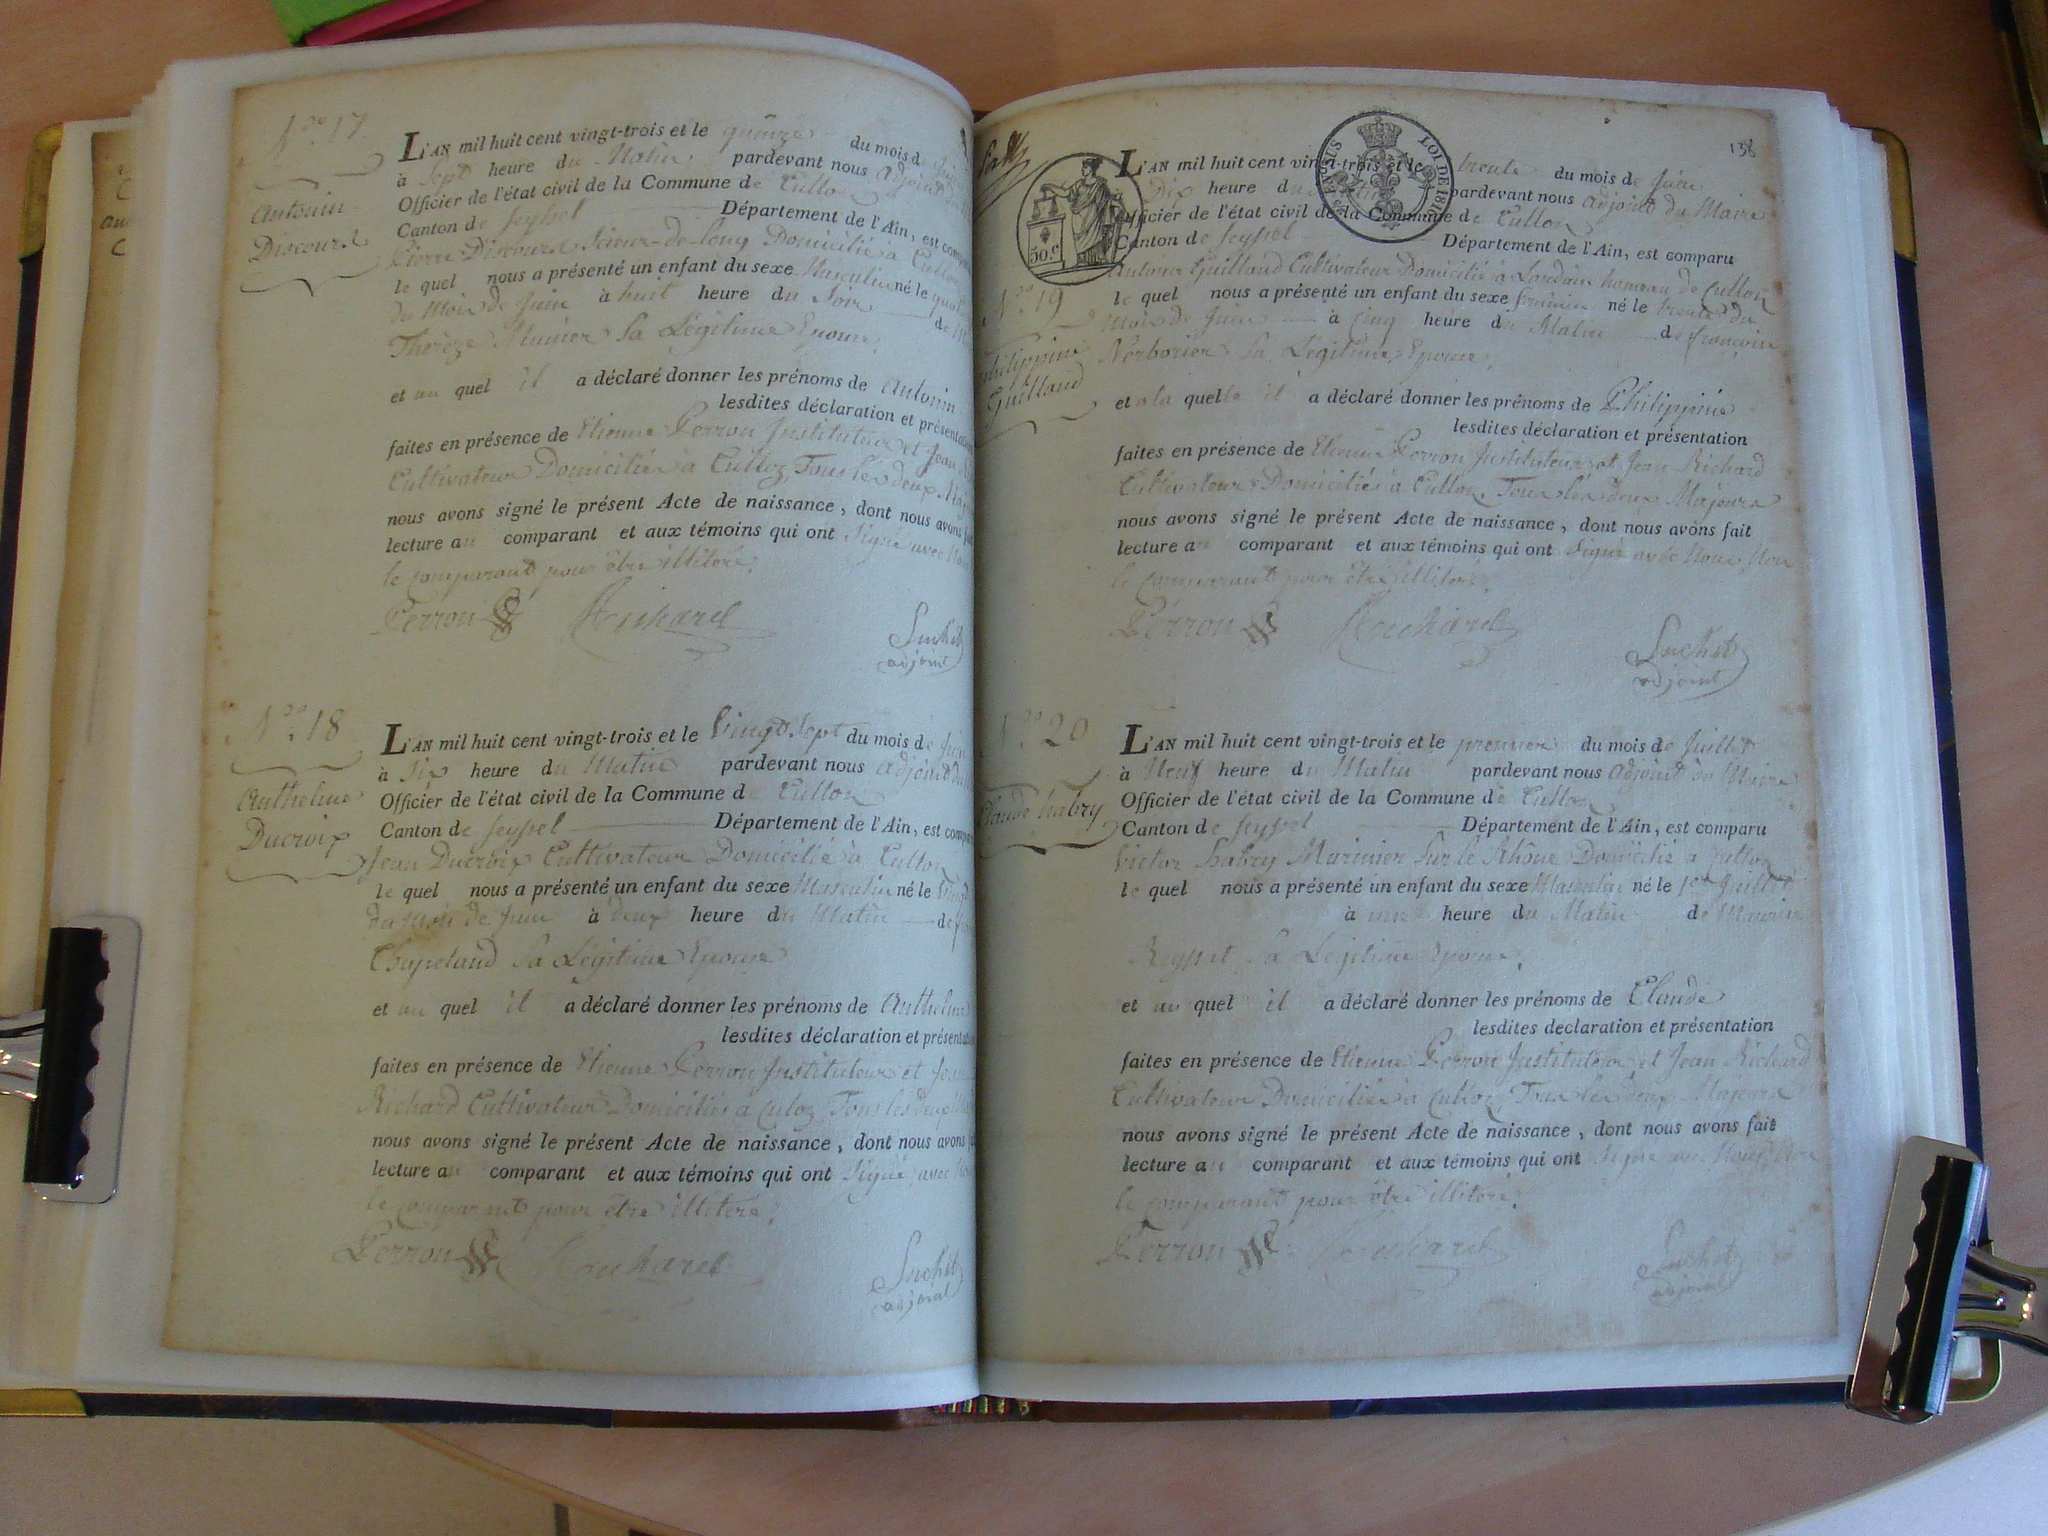 N.ro 17
Antonin
Discours
L'AN mil huit cent vingt-trois et le quinze du mois de
à sept heure du Matin pardevant nous adjoint
Officier de l'état civil de la Commune de Culloz
Canton de Seyssel Département de l'Ain, est comparu
Pierre Discours Scieur-de-long Domicilié à Culloz
le quel nous a présenté un enfant du sexe Masculin né le
du Mois de Juin à huit heure du Soir de
Thérèze Munier Sa Légitime Epouse
et au quel il a déclaré donner les prénoms de Antonin
lesdites déclaration et présentation
faites en présence de Etienne Perron Instituteur et Jean
Cultivateur Domiciliés à Culloz, Tous les deux
nous avons signé le présent Acte de naissance, dont nous avons fait
lecture au comparant et aux témoins qui ont Signé avec
le comparant pour être illitéré.
Perron
Suchet
adjoint
N.ro 18
Anthelme
Ducroix
L'AN mil huit cent vingt-trois et le Vingt Sept du mois de Juin
à Six heure du Matin pardevant nous adjoint
Officier de l'état civil de la Commune de Culloz
Canton de Seyssel Département de l'Ain, est comparu
Jean Ducroix Cultivateur Domicilié à Culloz
le quel nous a présenté un enfant du sexe Masculin né le
du Mois de Juin à deux heure du Matin de
Chapeland Sa Légitime Epouse
et au quel il a déclaré donner les prénoms de Anthelme
lesdites déclaration et présentation
faites en présence de Etienne Perron Instituteur et
Richard Cultivateur Domiciliés à Culoz Tous les deux
nous avons signé le présent Acte de naissance, dont nous avons
lecture au comparant et aux témoins qui ont Signé avec
le comparant pour être illitéré.
Perron
Suchet
adjoint
138
LOI DE 1816
50 c
N.ro 19
Philippine
Guilland
L'AN mil huit cent vingt-trois et le trente du mois de Juin
Dix heure du Matin pardevant nous adjoint du Maire
Officier de l'état civil de la Commune de Culloz
Canton de Seyssel Département de l'Ain, est comparu
Antoine Guilland Cultivateur Domicilié à Landaix hameau de Culloz
le quel nous a présenté un enfant du sexe féminin né le trente du
Mois de Juin à Cinq heure du Matin de
Sa Légitime Epouse
et a la quelle il a déclaré donner les prénoms de Philippine
lesdites déclaration et présentation
faites en présence de Etienne Perron Instituteur et Jean Richard
Cultivateur Domiciliés à Culloz, Tous les deux Majeurs
nous avons signé le présent Acte de naissance, dont nous avons fait
lecture au comparant et aux témoins qui ont Signé avec Nous Non
le comparant pour être illitéré.
Perron
Suchet
adjoint
N.ro 20
Claude habry
L'AN mil huit cent vingt-trois et le premier du mois de Juillet
à Neuf heure du Matin pardevant nous adjoint du Maire
Officier de l'état civil de la Commune de Culloz
Canton de Seyssel Département de l'Ain, est comparu
Victor habry Marinier Sur le Rhône Domicilié a Culloz
le quel nous a présenté un enfant du sexe Masculin né le 1er Juillet
à une heure du Matin de
Reysset Sa Légitime Epouse
et au quel il a déclaré donner les prénoms de Claude
lesdites declaration et présentation
faites en présence de Etienne Perron Instituteur et Jean Richard
Cultivateur Domiciliés à Culloz, Tous les deux Majeurs
nous avons signé le présent Acte de naissance, dont nous avons fait
lecture au comparant et aux témoins qui ont Signé avec Nous Non
le comparant pour être illitéré.
Perron
Suchet
adjoint